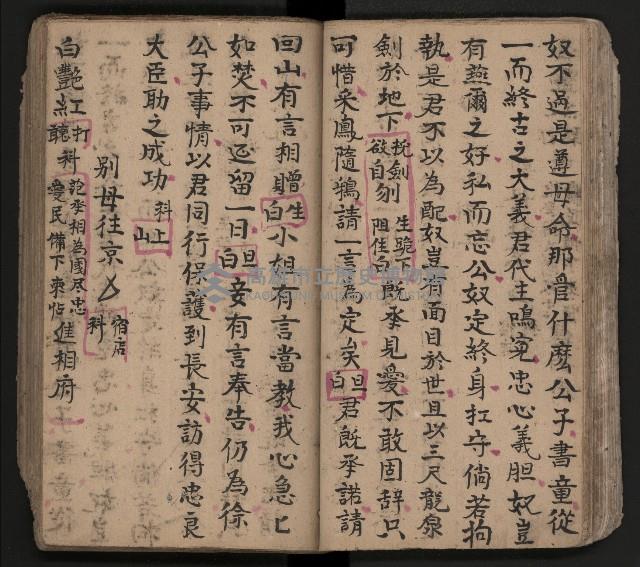 奴不過是尊母命那管什麽公子書童從
一而終古之大義君代主鳴寃忠心義胆奴豈
有燕爾之好私而忘公奴定終身扛守倘若拘
執是君不以為配奴豈有面目於世且以三尺龍泉
劍於地下 抌劍欲自刎 生跪下阻住白 既承見愛不敢固辞只
可惜采鳳隨鴉請一言為定矣 旦白 君既承諾請
回山有言相贈 生白 小姐有言當教我心急匕
如焚不可迟留一日 旦白 妾有言奉告仍為徐
公子事情以君同行保護到長安訪得忠良
大臣助之成功 科 上山
別母往京 宿店科
白 艷紅 打聽科 李相為國尽忠愛民備下柬帖 進相府
高雄市立歷史博物館
KAOHSIUNG MUSEUM OF HISTORY